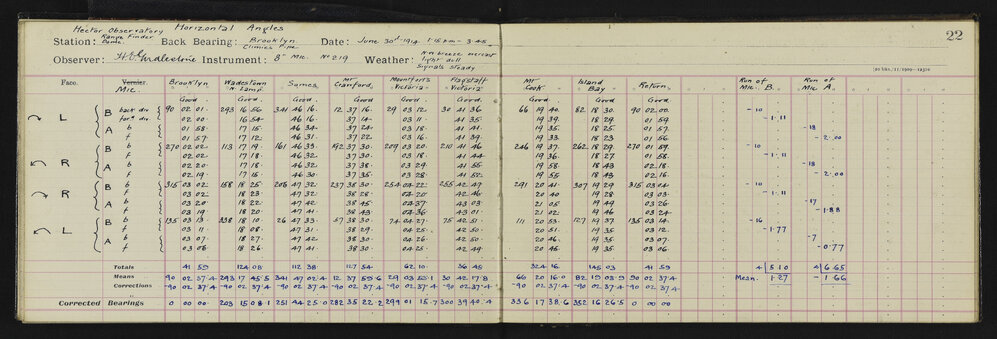 Hector Observatory Horizontal Angles
22
Station: Range Finder Dome. Back Bearing: Brooklyn Climies Pipe Date: June 30th 1914 1.15 pm - 3.45
Observer: Instrument: 8" Mic. No 219 Weather: N.W. breeze overcast light dull Signals steady
Face. Vernier. Mic. Brooklyn Wadestown n Lamp Sames Mr Crawford Mountfort's Victoria Flagstaff Victoria Mt Cook Island Bay Return. Run of Mic. B. Run of Mic. A.
Good. Good. Good. Good. Good. Good. Good. Good. Good.
L B back div. 90 02 01 293 16 56 341 46 16 12 37 16 29 03 12 30 41 36 66 19 40 82 18 30 90 02 00 -10
for'd div. 02 00 16 54 46 16 37 14 03 11 41 35 19 39 18 29 01 59 -1.11
A b 01 58 17 15 46 34 37 24 03 18 41 41 19 35 18 25 01 57 -18
f 01 57 17 12 46 31 37 22 03 16 41 39 19 33 18 23 01 56 -2.00
R B b 270 02 02 113 17 19 161 46 33 192 37 30 209 03 20 210 41 46 246 19 37 262 18 29 270 01 59 -10
f 02 02 17 18 46 32 37 30 03 18 41 44 19 36 18 27 01 58 -1.11
A b 02 20 17 18 46 32 37 38 03 29 41 55 19 58 18 43 02 18 -18
f 02 19 17 15 46 30 37 35 03 28 41 52 19 55 18 43 02 16 -2.00
R B b 315 03 02 158 18 25 206 47 32 237 38 30 254 04 22 255 42 47 291 20 41 307 19 29 315 03 04 -10
f 03 02 18 23 47 32 38 28 04 20 42 46 20 40 19 28 03 03 -1.11
A b 03 20 18 22 47 42 38 45 04 37 43 03 21 05 19 49 03 26 -17
f 03 19 18 20 47 41 38 43 04 36 43 01 21 02 19 46 03 24 -1.88
L B b 135 03 13 338 18 10 26 47 33 57 38 30 74 04 27 75 42 51 111 20 53 127 19 37 135 03 14 -16
f 03 11 18 08 47 31 38 29 04 25 42 50 20 51 19 35 03 12 -1.77
A b 03 07 18 27 47 42 38 30 04 26 42 50 20 46 19 35 03 07 -7
f 03 06 18 26 47 41 38 30 04 25 42 49 20 45 19 35 03 06 -0.77
Totals 41 59 124 08 112 38 127 54 62 10 36 45 324 16 145 03 41 59 4 5.10 4 6.65
Means 90 02 37.4 293 17 45.5 341 47 02.4 12 37 59.6 29 03 53.1 30 42 17.8 66 20 16.0 82 19 03.9 90 02 37.4 Mean 1.27 - 1.66
Corrections -90 02 37.4 -90 02 37.4 -90 02 37.4 -90 02 37.4 -90 02 37.4 -90 02 37.4 -90 02 37.4 -90 02 37.4 -90 02 37.4
Corrected Bearings 0 00 00 203 15 08.1 251 44 25.0 282 35 22.2 299 01 15.7 300 39 40.4 336 17 38.6 352 16 26.5 0 00 00